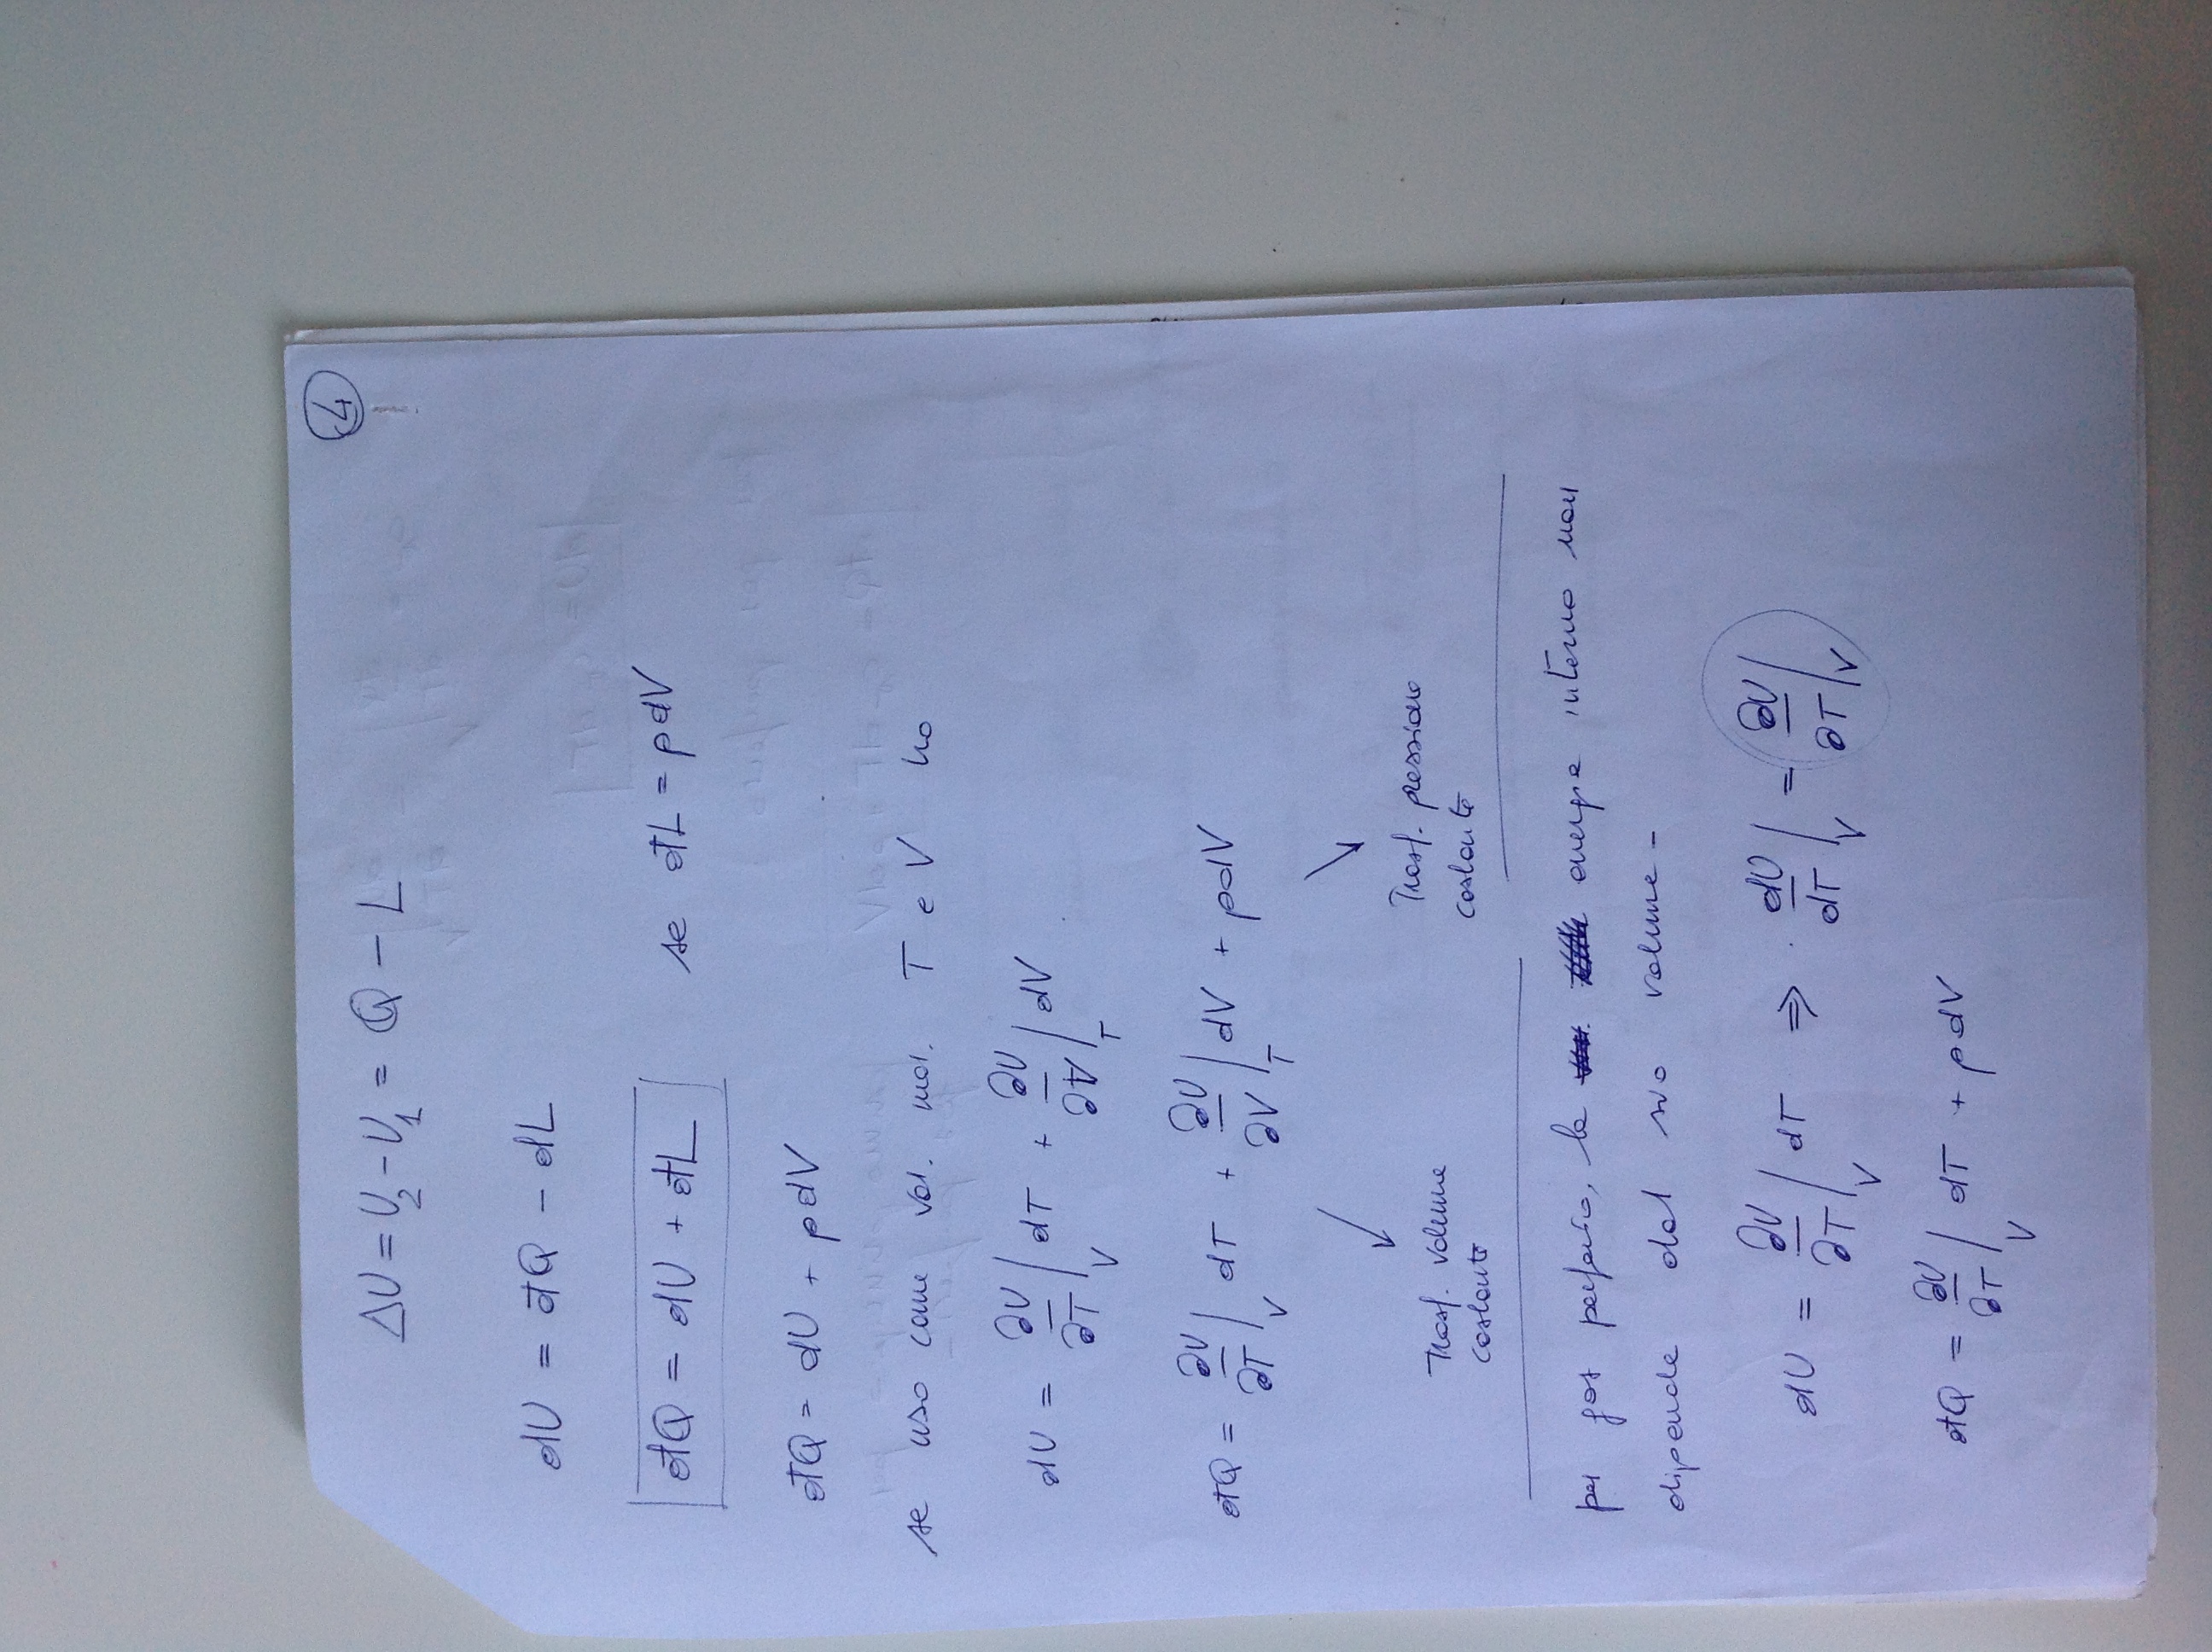 4
ΔU = U₂ - U₁ = Q - L
dU = đQ - dL
đQ = dU + đL se đL = pdV
đQ = dU + pdV
se uso come var. ind. T e V ho
dU = ∂U/∂T |_V dT + ∂U/∂V |_T dV
đQ = ∂U/∂T |_V dT + ∂U/∂V |_T dV + pdV
Trasf. volume costante
Trasf. pressione costante
per gas perfetto, la energia interna non
dipende dal suo volume -
dU = ∂U/∂T |_V dT ⇒ dU/dT |_V = ∂U/∂T |_V
đQ = ∂U/∂T |_V dT + pdV